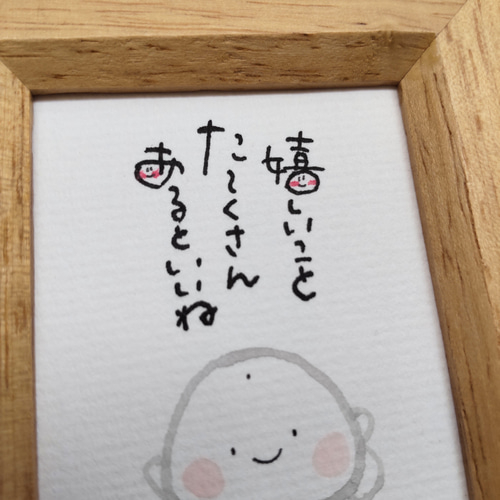 嬉しいこと
た〜くさん
あるといいね